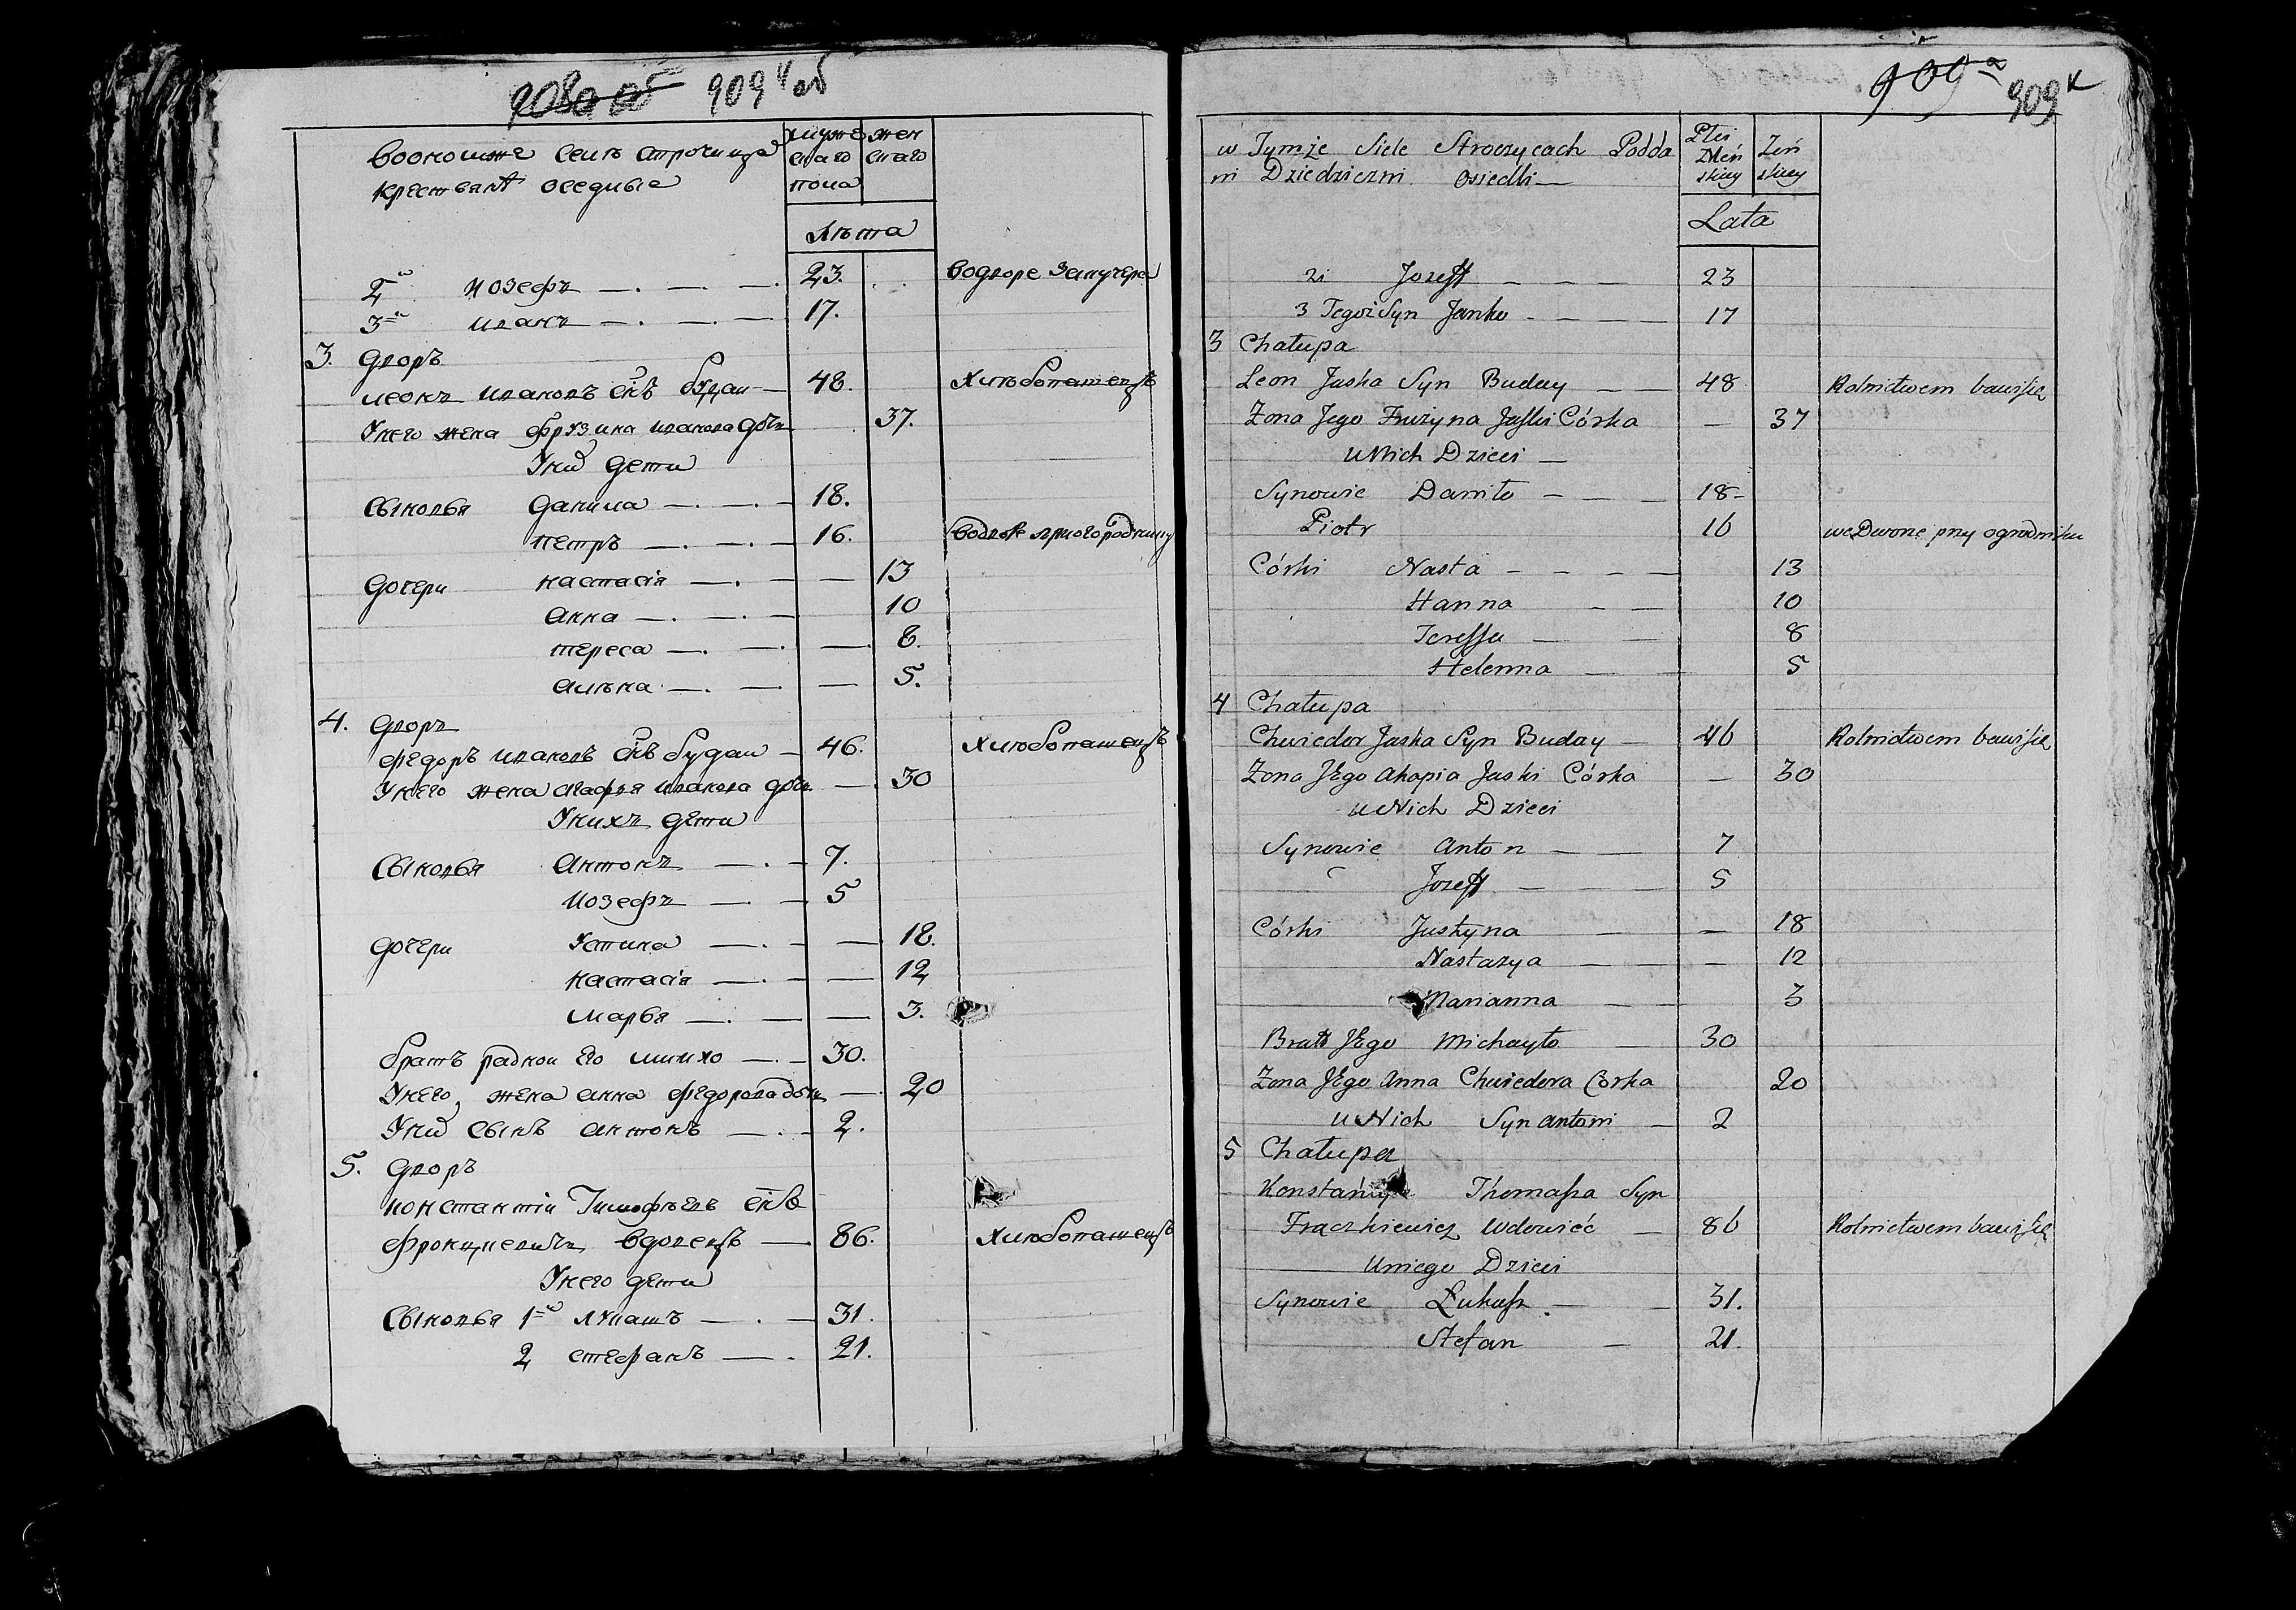 908а об 909 ч об
Воономже селъ строчица
крестьянъ оседлые
мужескаго пола
женскаго
Лѣта
2й иозефъ 23. водворе закучера
3й иванъ 17.
3. дворъ
леонъ ивановъ снъ будаи 48. хлѣбопашецъ
Унего жена фрузина иванова дочь 37.
Уних дети
Сыновья данила 18.
петръ 16. водворе пригородничу
дочери настасія 13
анна 10
тереса 8.
алѣна 5.
4. дворъ
федоръ ивановъ снъ будаи 46. хлѣбопашецъ
Унего жена агафья иванова дочь 30
Унихъ дети
Сыновья антонъ 7.
иозефъ 5
дочери Устина 18.
настасія 12
марья 3.
братъ раднои его михио 30.
Унего жена анна федорова дочь 20
Уних сынъ антонъ 2.
5. дворъ
константіи Тимофѣевъ снъ
фронцкевичъ вдовецъ 86. хлѣбопашецъ
Унего дети
Сыновья 1й лукашъ 31.
2 стефанъ 21.
909а 909 к
w Tymże Siele Stroczycach Podda
ni Dziedziczni Osiedli
Płci Męń skiey
Żeń skiey
Lata
2i Jozeff 23
3 Tegoż Syn Janko 17
3 Chałupa
Leon Jaska Syn Buday 48 Rolnictwem bawi się
Zona Jego Fruzyna Jaski Córka 37
u Nich Dzieci
Synowie Daniło 18
Piotr 16 we Dworie przy ogrodniku
Córki Nasta 13
Hanna 10
Teressa 8
Helenna 5
4 Chałupa
Chwiedor Jaska Syn Buday 46 Rolnictwem bawi się
Zona Jego Ahapia Jaski Córka 30
u Nich Dzieci
Synowie Anton 7
Jozeff 5
Córki Justyna 18
Nastazya 12
Marianna 3
Bratt Jego Michayło 30
Zona Jego Anna Chwiedora Córka 20
u Nich Syn Antoni 2
5 Chałupa
Konstanty Thomasza Syn
Frączkiewicz Wdowieć 86 Rolnictwem bawi się
u niego Dzieci
Synowie Łukasz 31.
Stefan 21.